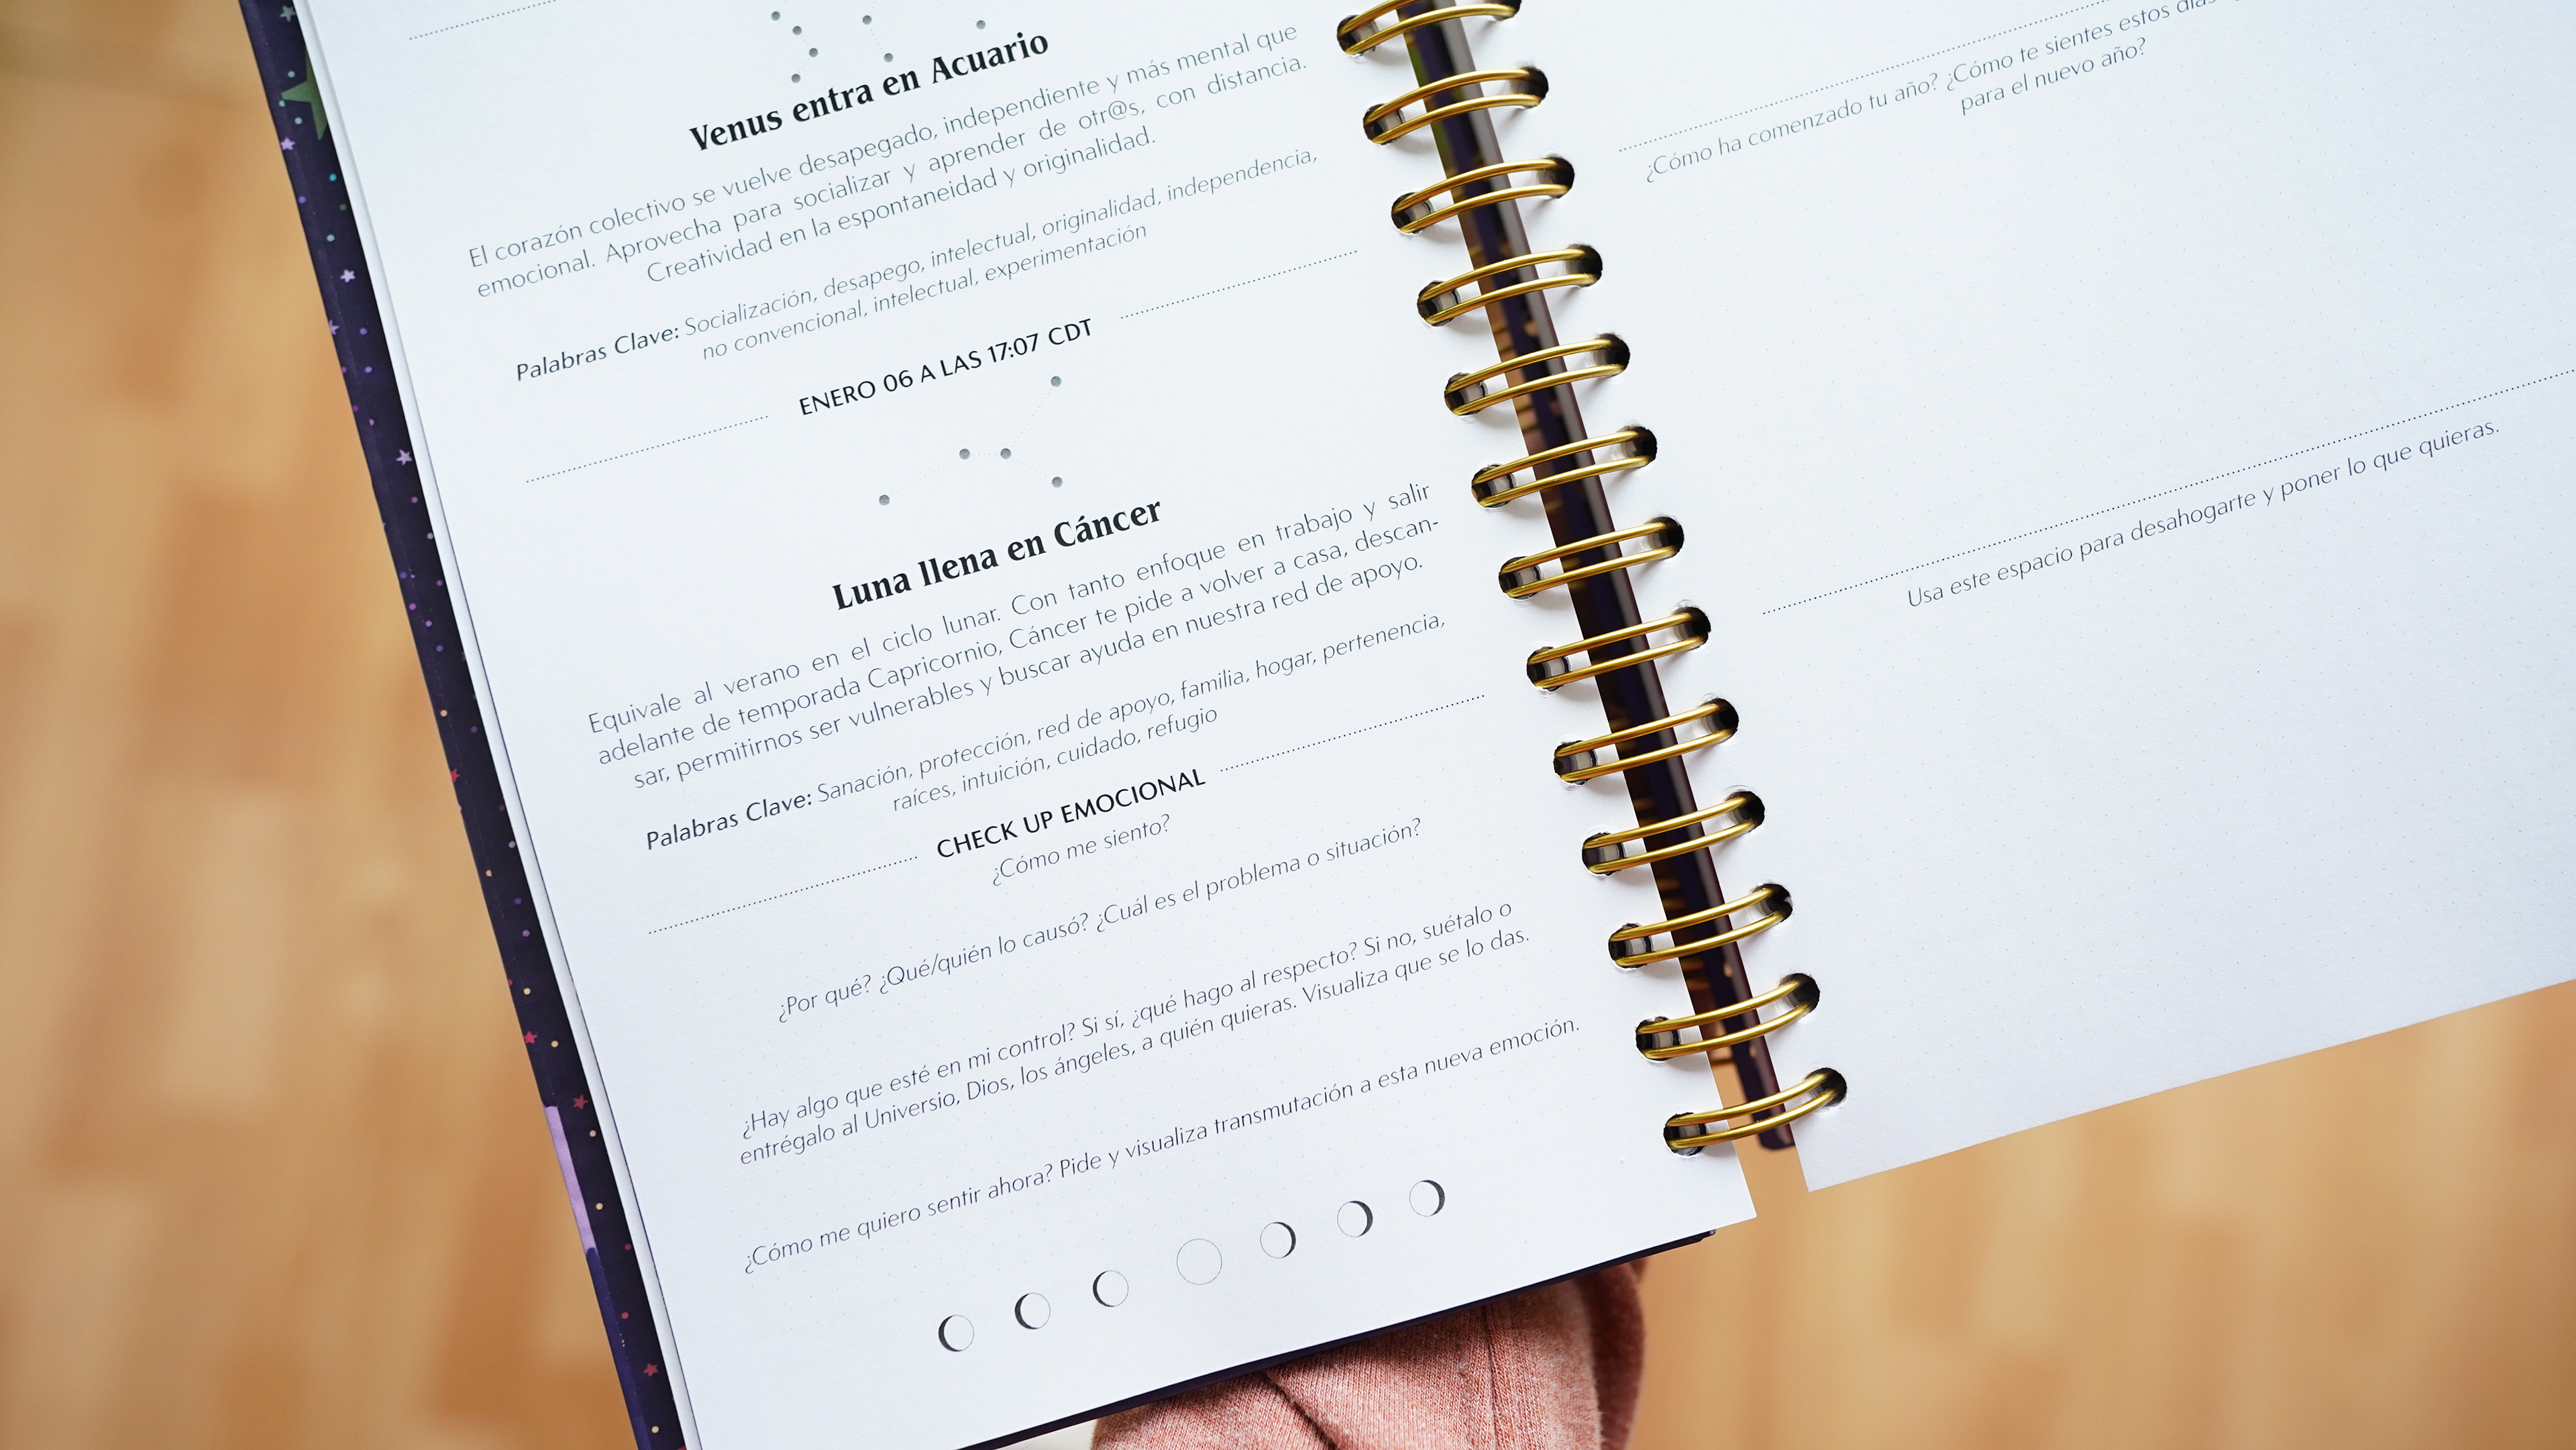 Venus entra en Acuario
El corazón colectivo se vuelve desapegado, independiente y más mental que
emocional. Aprovecha para socializar y aprender de otr@s, con distancia.
Creatividad en la espontaneidad y originalidad.
Palabras Clave: Socialización, desapego, intelectual, originalidad, independencia,
no convencional, intelectual, experimentación
ENERO 06 A LAS 17:07 CDT
Luna llena en Cáncer
Equivale al verano en el ciclo lunar. Con tanto enfoque en trabajo y salir
adelante de temporada Capricornio, Cáncer te pide a volver a casa, descan-
sar, permitirnos ser vulnerables y buscar ayuda en nuestra red de apoyo.
Palabras Clave: Sanación, protección, red de apoyo, familia, hogar, pertenencia,
raíces, intuición, cuidado, refugio
CHECK UP EMOCIONAL
¿Cómo me siento?
¿Por qué? ¿Qué/quién lo causó? ¿Cuál es el problema o situación?
¿Hay algo que esté en mi control? Si sí, ¿qué hago al respecto? Si no, suétalo o
entrégalo al Universio, Dios, los ángeles, a quién quieras. Visualiza que se lo das.
¿Cómo me quiero sentir ahora? Pide y visualiza transmutación a esta nueva emoción.
¿Cómo ha comenzado tu año? ¿Cómo te sientes estos días
para el nuevo año?
Usa este espacio para desahogarte y poner lo que quieras.